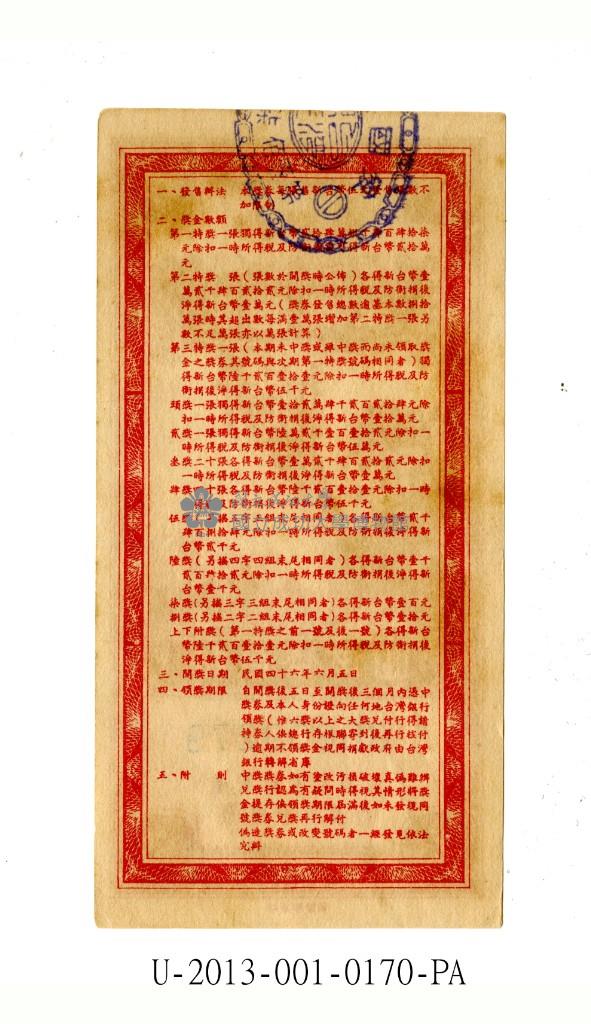 一、發售辦法　本獎券每張售新台幣伍元發售張數不
加限制
二、獎金數額
第一特獎一張獨得新台幣
元除扣一時所得稅及防衛捐後淨得新台幣貳拾萬
元
第二特獎　張（張數於開獎時公佈）各得新台幣壹
萬貳千肆百貳拾貳元除扣一時所得稅及防衛捐後
淨得新台幣壹萬元（獎券發售總數逾基本數捌拾
萬張時其超出數每滿壹萬張增加第二特獎一張另
數不足萬張亦以萬張計算）
第三特獎一張（本期未中獎或雖中獎而尚未領取獎
金之獎券其號碼與次期第一特獎號碼相同者）獨
得新台幣陸千貳百壹拾壹元除扣一時所得稅及防
衛捐後淨得新台幣伍千元
頭獎一張獨得新台幣壹拾貳萬肆千貳百貳拾肆元除
扣一時所得稅及防衛捐後淨得新台幣壹拾萬元
貳獎一張獨得新台幣陸萬貳千壹百壹拾貳元除扣一
時所得稅及防衛捐後淨得新台幣伍萬元
叁獎二十張各得新台幣壹萬貳千肆百貳拾貳元除扣
一時所得稅及防衛捐後淨得新台幣壹萬元
肆獎　十張各得新台幣陸千貳百壹拾壹元除扣一時
得稅及防衛捐後淨得新台幣伍千元
伍獎
肆百
台幣貳千元
陸獎（另搖四字四組末尾相同者）各得新台幣壹千
貳百肆拾貳元除扣一時所得稅及防衛捐後淨得新
台幣壹千元
柒獎（另搖三字三組末尾相同者）各得新台幣壹百元
捌獎（另搖二字二組末尾相同者）各得新台幣伍拾元
上下附獎（第一特獎之前一號及後一號）各得新台
幣陸千貳百壹拾壹元除扣一時所得稅及防衛捐後
淨得新台幣伍千元
三、開獎日期　民國四十六年六月五日
四、領獎期限　自開獎後五日至開獎後三個月內憑中
獎券及本人身份證向任何地台灣銀行
領獎（惟六獎以上之大獎兌付行得請
持券人俟總行存根聯寄到後再行核付
）逾期不領獎金視同捐獻政府由台灣
銀行轉解省庫
五、附　　則　中獎獎券如有塗改污損破壞真偽難辨
兌獎行認為有疑問時得視其情形將獎
金提存俟領獎期限屆滿後如未發現同
號獎券兌獎再行解付
偽造獎券或改變號碼者一經發見依法
究辦
國立成功大學博物館
U-2013-001-0170-PA